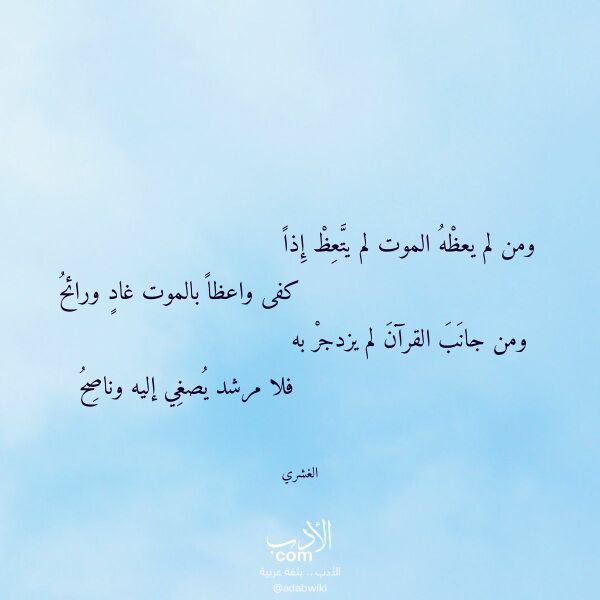 ومن لم يعظْهُ الموت لم يتَّعِظْ إِذاً
كفى واعظاً بالموت غادٍ ورائحُ
ومن جانَبَ القرآنَ لم يزدجرْ به
فلا مرشد يُصغِي إليه وناصِحُ
الغشري
الأدب
com
الأدب .. بلغة عربية
@adabwiki